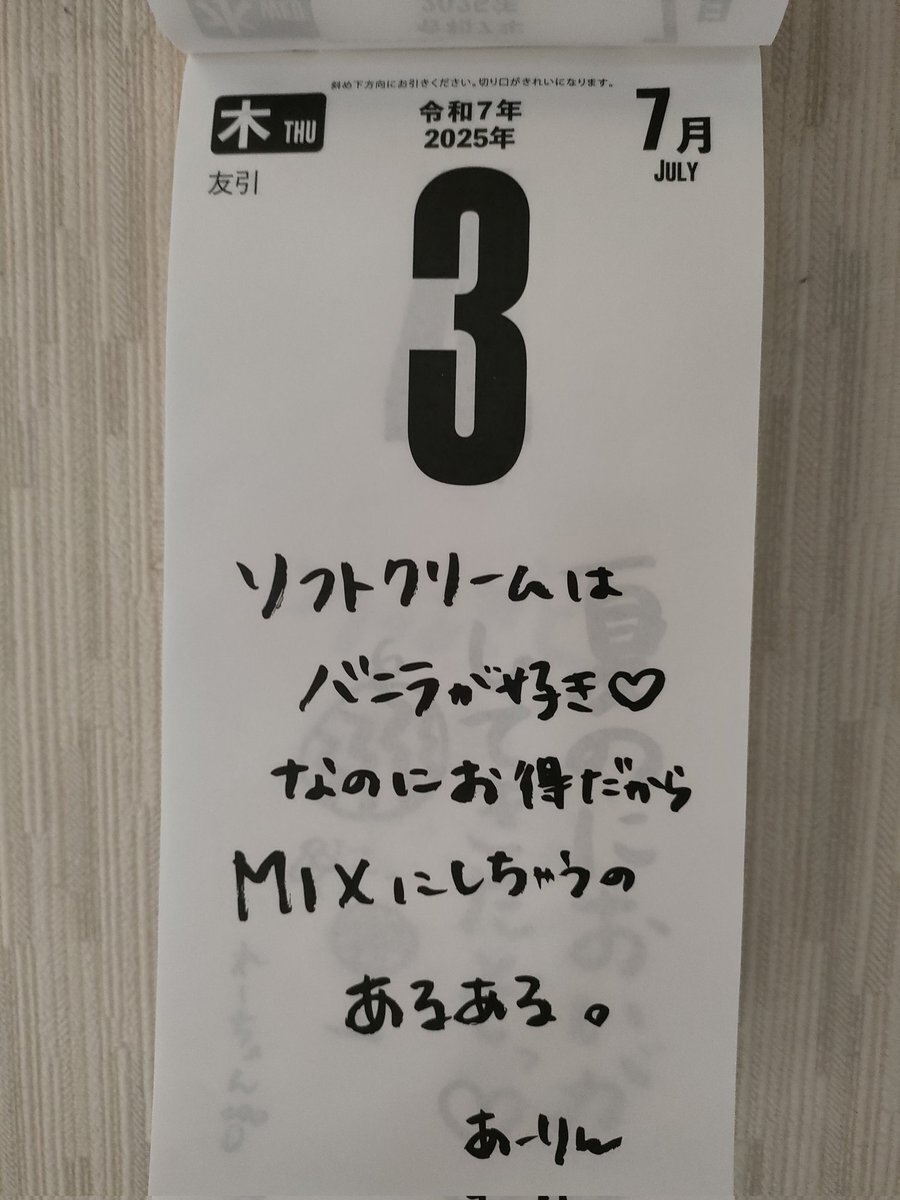 斜め下方向にお引きください。切り口がきれいになります。
木 THU
令和7年
2025年
7月
JULY
友引
3
ソフトクリームは
バニラが好き♡
なのにお得だから
MIXにしちゃうの
あるある。
あーりん